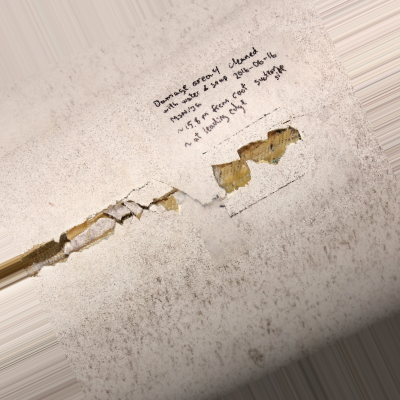 Damage area 4 cleaned
with water & soap 2016-06-16
~15.8 m from root suction side
~ at leading edge